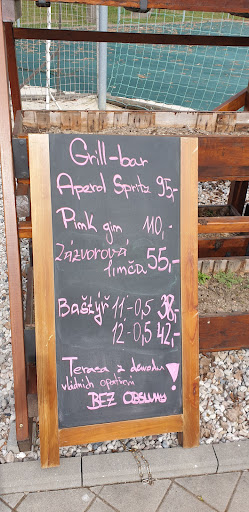 Grill-bar
Aperol Spritz 95,-
Pink gin 110,-
Zázvorová
limča 55,-
Baštýř 11°-0,5 38,-
12°-0,5 42,-
Terasa z důvodu
vládních opatření
BEZ OBSLUHY !